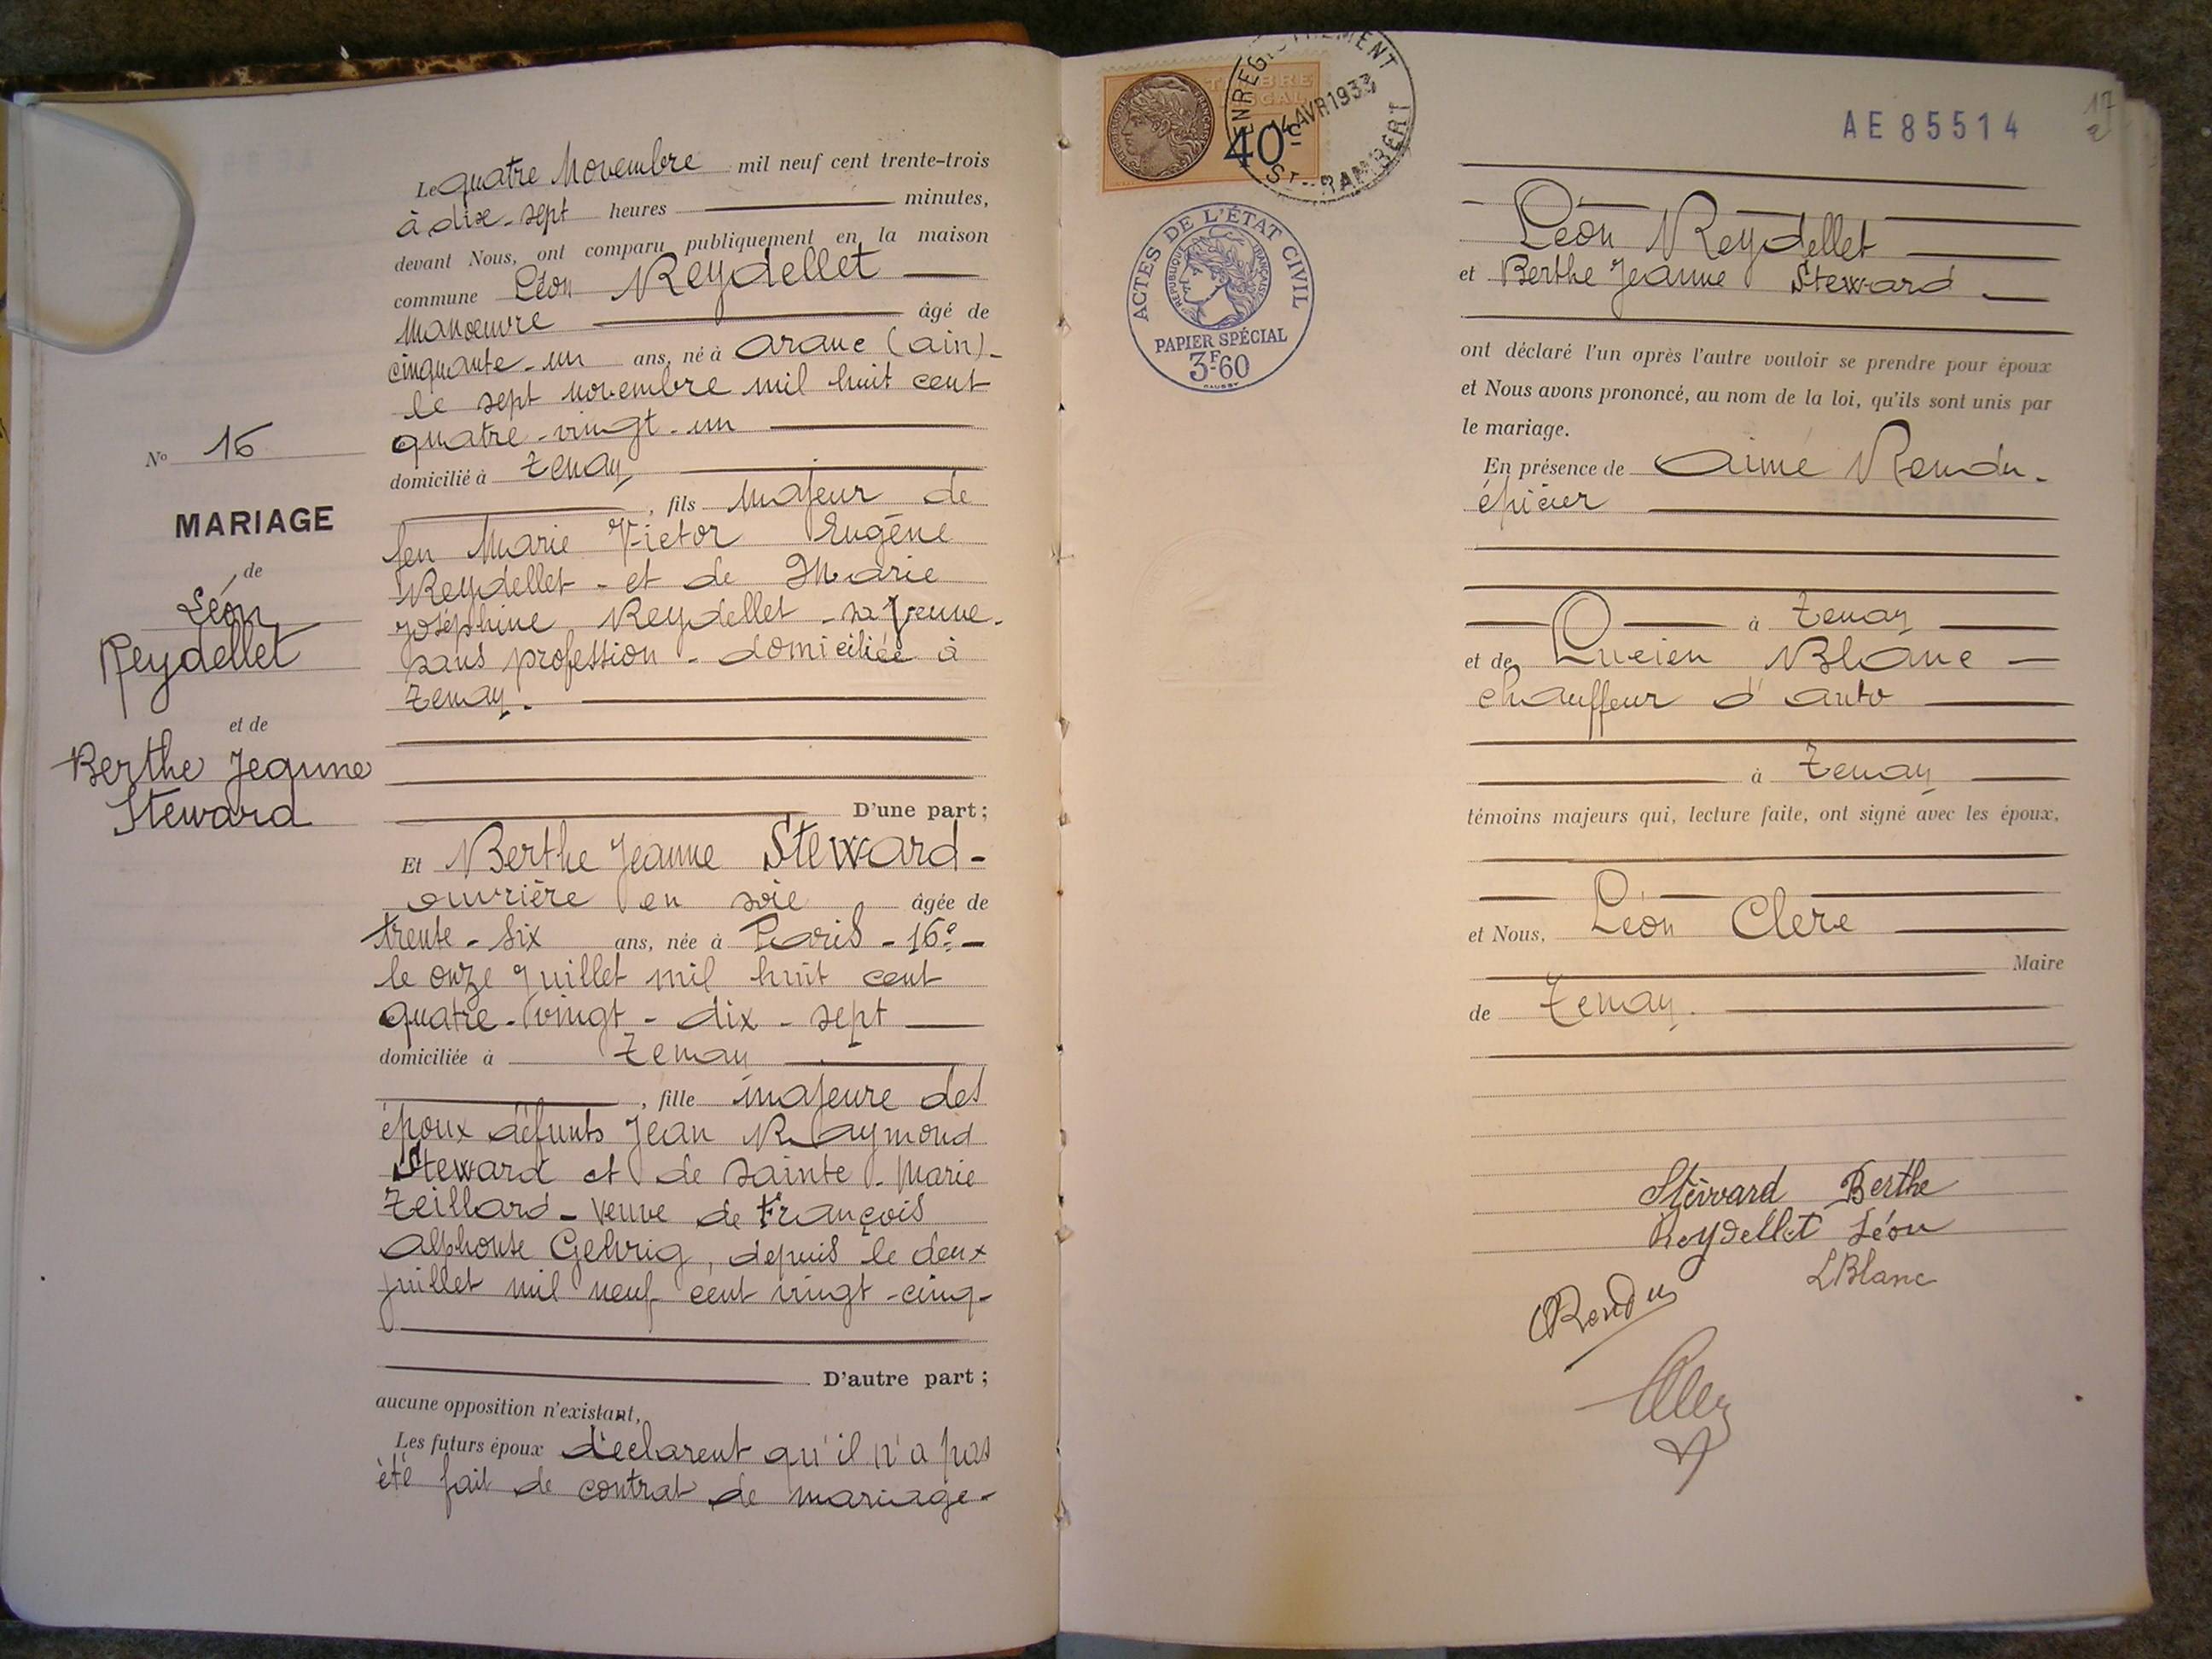 N° 16
MARIAGE
de
Léon
Reydellet
et de
Berthe Jeanne
Steward
Le quatre Novembre mil neuf cent trente-trois
à dix-sept heures minutes,
devant Nous, ont comparu publiquement en la maison
commune Léon Reydellet
Manœuvre âgé de
cinquante-un ans, né à Aranc (ain)-
le sept novembre mil huit cent
quatre-vingt-un
domicilié à Tenay
, fils Majeur de
feu Marie Victor Eugène
Reydellet - et de Marie
Joséphine Reydellet - sa veuve-
sans profession - domiciliée à
Tenay.
D'une part;
Et Berthe Jeanne Steward-
ouvrière en soie âgée de
trente-six ans, née à Paris-16e-
le onze Juillet mil huit cent
quatre-vingt-dix-sept
domiciliée à Tenay
, fille majeure des
époux défunts Jean Raymond
Steward et de Sainte-Marie
Teillard - veuve de François
Alphonse Gehrig, depuis le deux
juillet mil neuf cent vingt-cinq-
D'autre part;
aucune opposition n'existant,
Les futurs époux déclarent qu'il n'a pas
été fait de contrat de mariage-
TIMBRE
FISCAL
40c
ENREGISTREMENT
AVR 1933
ST-RAMBERT
ACTES DE L'ÉTAT CIVIL
RÉPUBLIQUE FRANÇAISE
PAPIER SPÉCIAL
3F60
AE85514
17
Léon Reydellet
et Berthe Jeanne Steward
ont déclaré l'un après l'autre vouloir se prendre pour époux
et Nous avons prononcé, au nom de la loi, qu'ils sont unis par
le mariage.
En présence de Aimé Rendu-
épicier
à Tenay
et de Lucien Blanc
chauffeur d'auto
à Tenay
témoins majeurs qui, lecture faite, ont signé avec les époux,
et Nous, Léon Clerc
Maire
de Tenay.
Steward Berthe
Reydellet Léon
LBlanc
Rendu